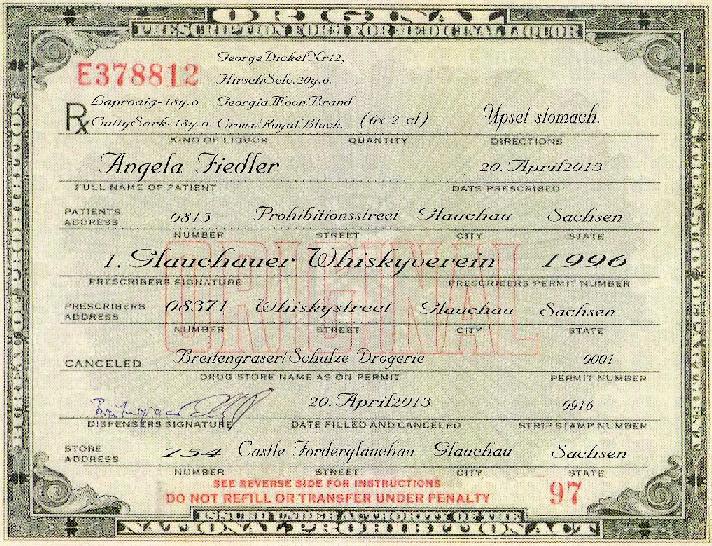 ORIGINAL
PRESCRIPTION FORM FOR MEDICINAL LIQUOR
E378812
George Dickel Nr12,
Hirsch Selc. 20y.o.
Laproaig-18y.o Georgia Moon Brand
Rx CuttySark-18y.o Crown Royal Black. (6x 2 cl) Upset stomach.
KIND OF LIQUOR QUANTITY DIRECTIONS
Angela Fiedler 20. April2013
FULL NAME OF PATIENT DATE PRESCRIBED
PATIENTS ADDRESS 0815 Prohibitionsstreet Glauchau Sachsen
NUMBER STREET CITY STATE
1. Glauchauer Whiskyverein 1996
PRESCRIBERS SIGNATURE PRESCRIBERS PERMIT NUMBER
ORIGINAL
PRESCRIBERS ADDRESS 08371 Whiskystreet Glauchau Sachsen
NUMBER STREET CITY STATE
CANCELED Breitengraser/Schulze Drogerie 0001
DRUG STORE NAME AS ON PERMIT PERMIT NUMBER
20. April2013 0916
DISPENSERS SIGNATURE DATE FILLED AND CANCELED STRIP STAMP NUMBER
STORE ADDRESS 754 Castle Forderglauchau Glauchau Sachsen
NUMBER STREET CITY STATE
SEE REVERSE SIDE FOR INSTRUCTIONS
DO NOT REFILL OR TRANSFER UNDER PENALTY 97
ISSUED UNDER AUTHORITY OF THE
NATIONAL PROHIBITION ACT